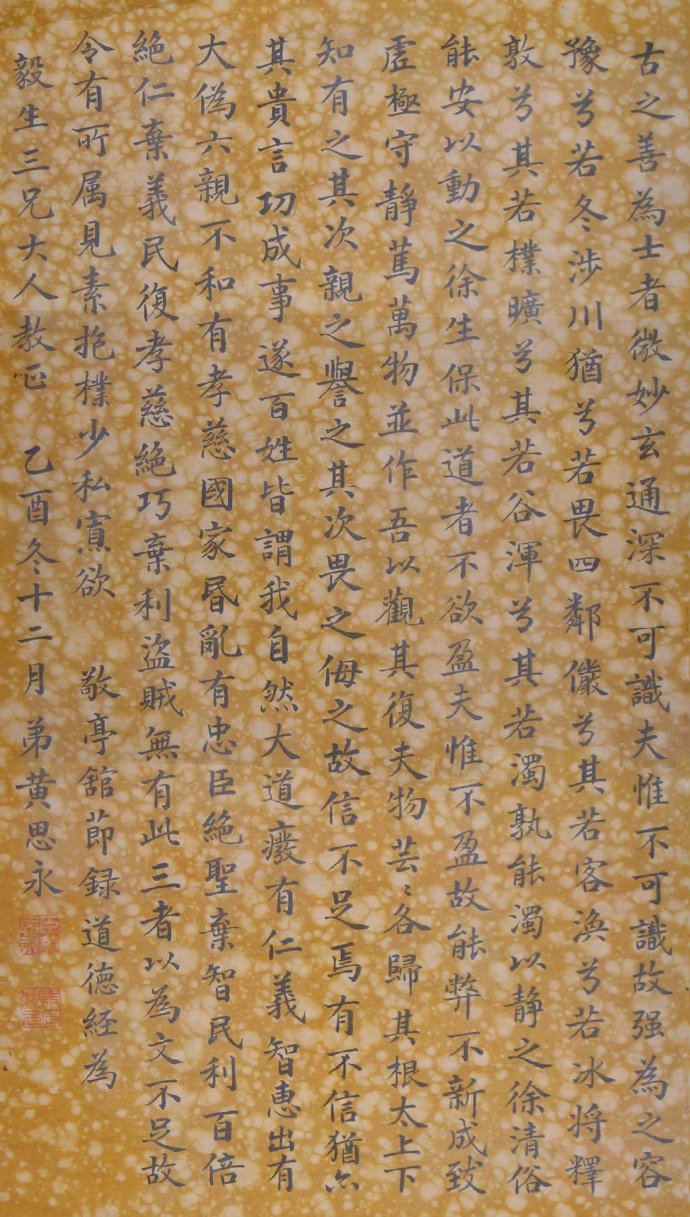 古之善為士者微妙玄通深不可識夫惟不可識故强為之容
豫兮若冬涉川猶兮若畏四鄰儼兮其若客渙兮若冰將釋
敦兮其若樸曠兮其若谷渾兮其若濁孰能濁以静之徐清俗
能安以動之徐生保此道者不欲盈夫惟不盈故能弊不新成致
虛極守靜篤萬物並作吾以觀其復夫物芸〻各歸其根太上下
知有之其次親之譽之其次畏之侮之故信不足焉有不信猶兮
其貴言功成事遂百姓皆謂我自然大道廢有仁義智惠出有
大偽六親不和有孝慈國家昏亂有忠臣絕聖棄智民利百倍
絕仁棄義民復孝慈絕巧棄利盜賊無有此三者以為文不足故
令有所属見素抱樸少私寡欲 敬亭舘節録道德経為
毅生三兄大人教正 乙酉冬十二月弟黃思永